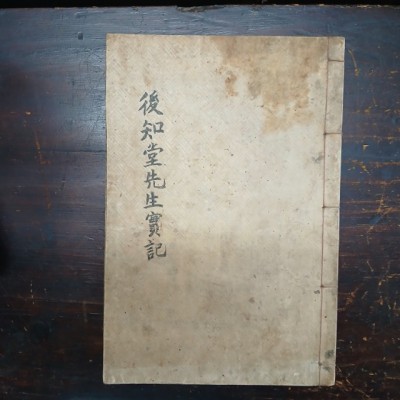 後知堂先生實記